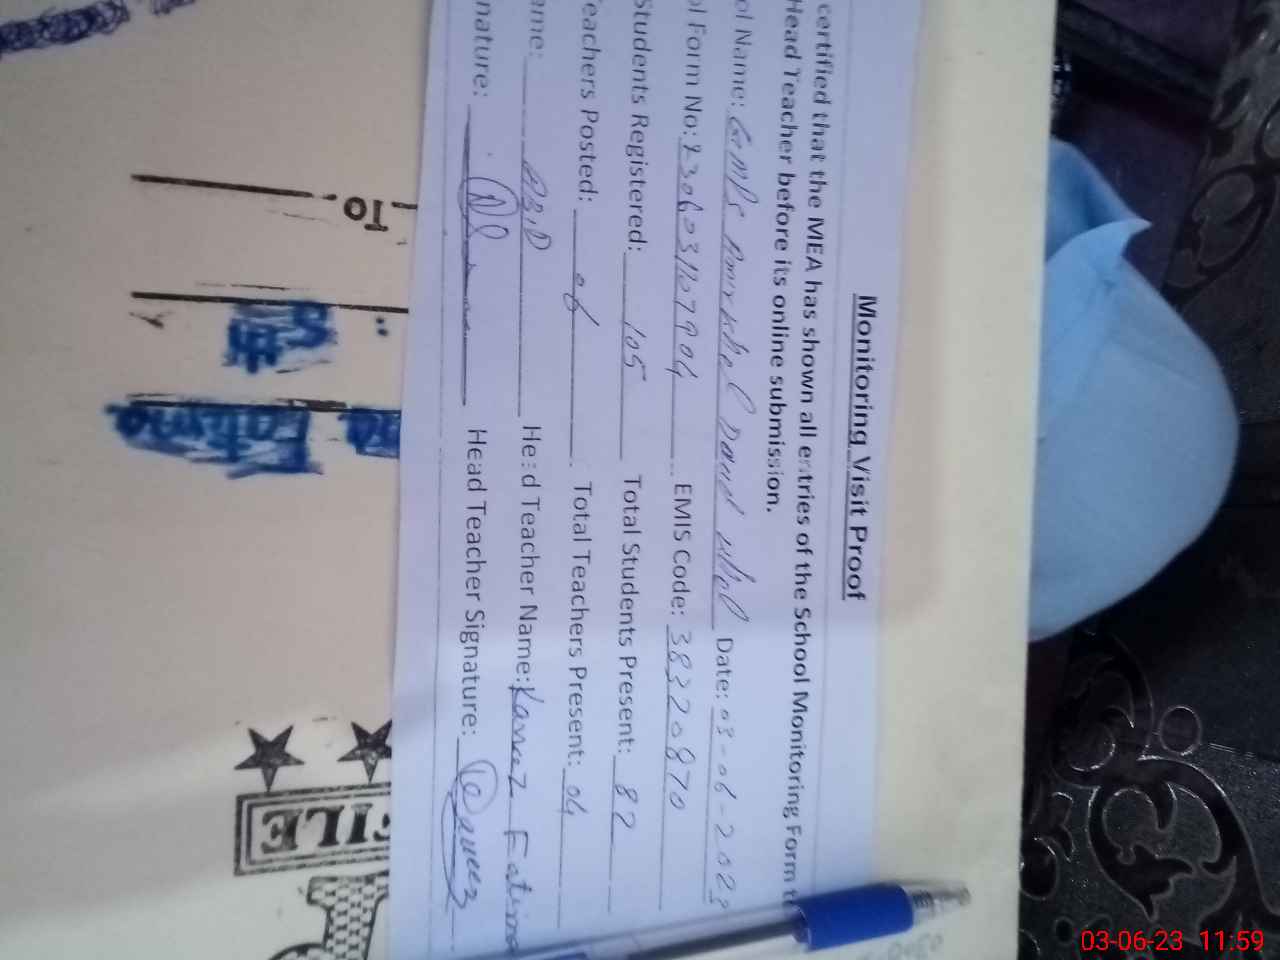 Monitoring Visit Proof
certified that the MEA has shown all entries of the School Monitoring Form t
Head Teacher before its online submission.
ol Name: GMPS Daud Date: 03-06-2023
ol Form No: 230603107904 EMIS Code: 38320870
Students Registered: 105 Total Students Present: 82
eachers Posted: 06 Total Teachers Present: 04
ame: ABID Head Teacher Name: Kaneez Fatima
nature: Head Teacher Signature: Kaneez
To
5th
Fatima
FILE
03-06-23 11:59